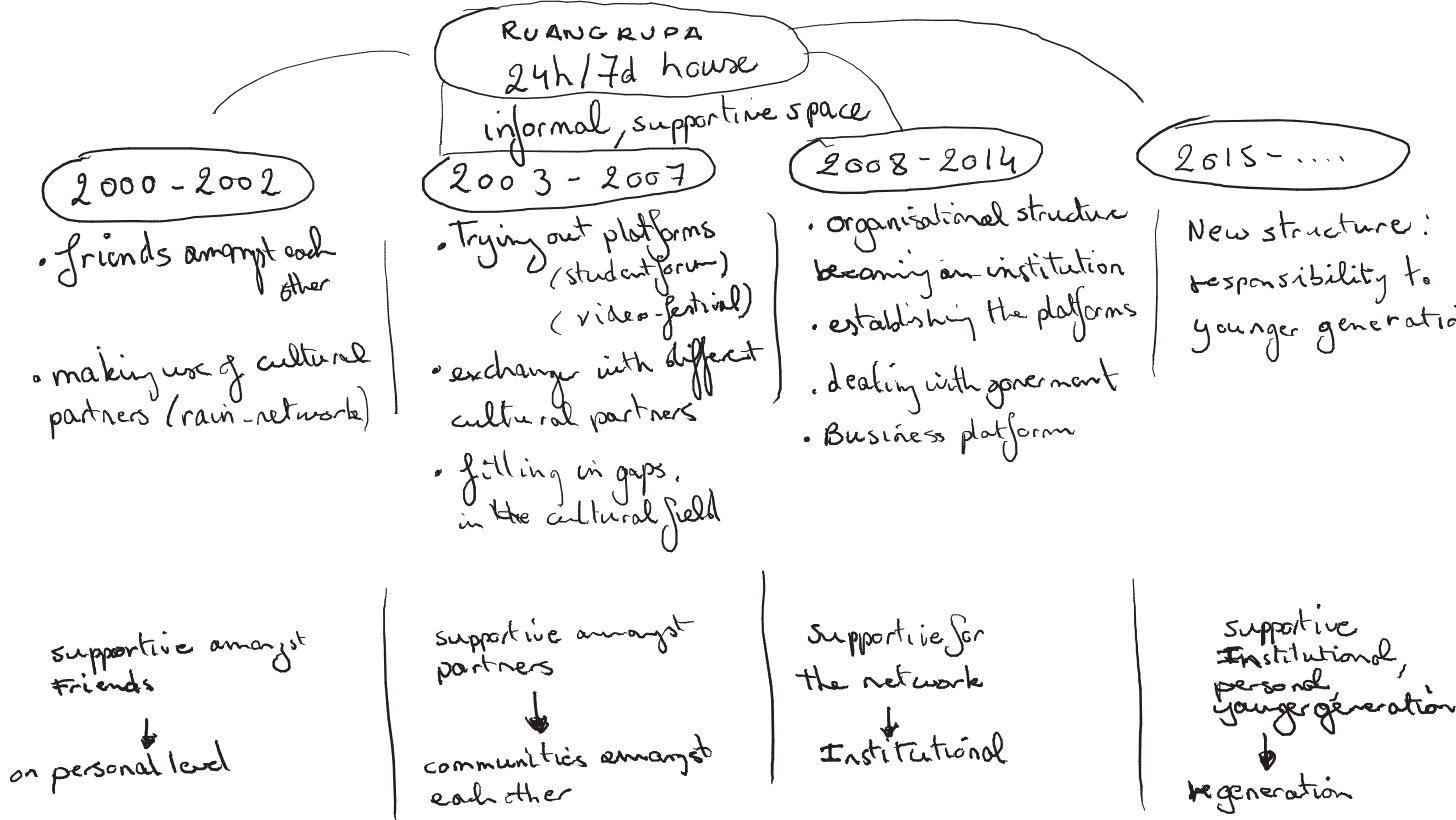 RUANGRUPA
24h/7d house
informal, supportive space
2000 - 2002
• friends amongst each
other
• making use of cultural
partners (rain-network)
supportive amongst
Friends
on personal level
2003 - 2007
• Trying out platforms
(studentforum)
(video-festival)
• exchange with different
cultural partners
• filling in gaps.
in the cultural field
supportive amongst
partners
communities amongst
each other
2008 - 2014
• organisational structure
becoming an institution
• establishing the platforms
• dealing with
• Business platform
supportive for
the network
Institutional
2015 - ....
New structure:
responsibility to
younger generatio
supportive
Institutional,
personal,
younger génération
regeneration